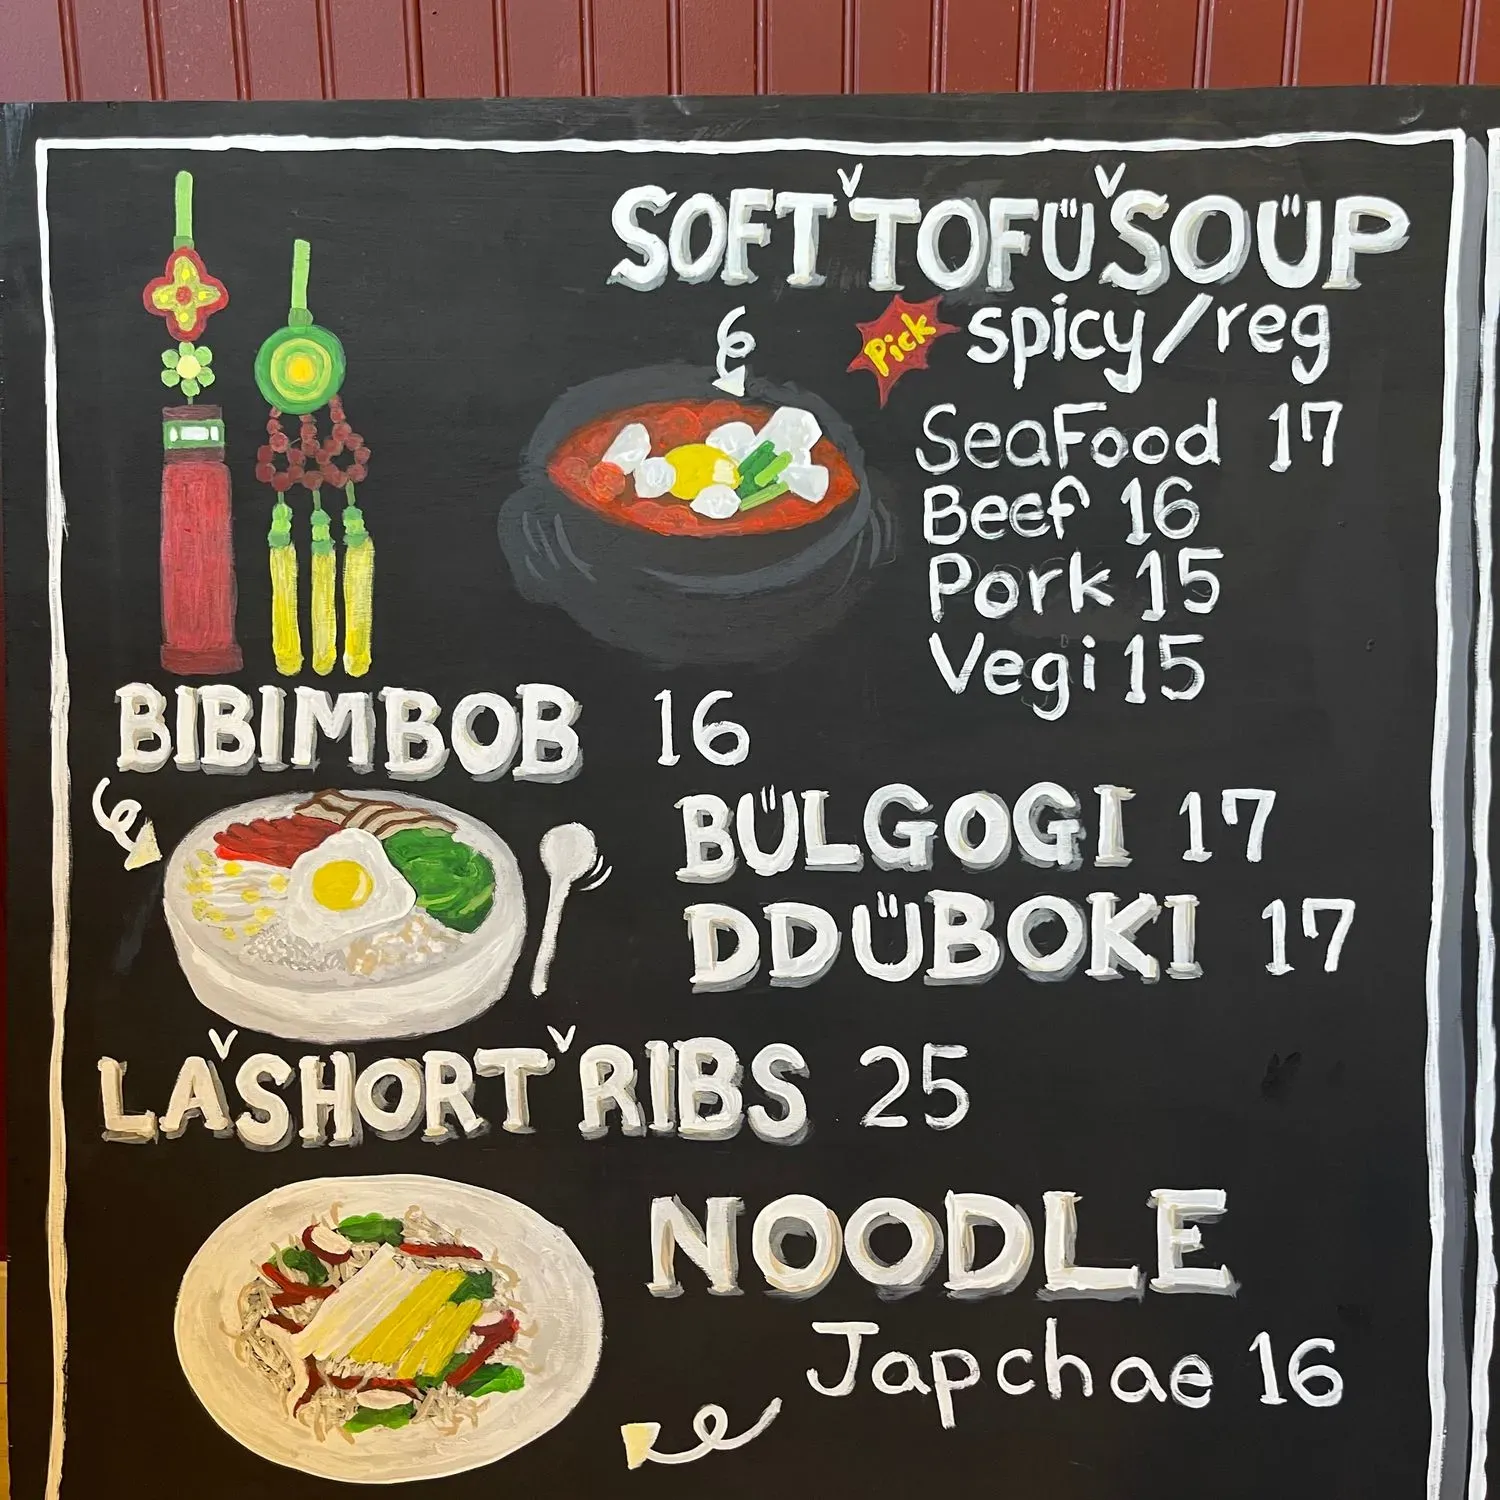 SOFTˇTOFÜˇSOÜP
Pick spicy/reg
SeaFood 17
Beef 16
Pork 15
Vegi 15
BIBIMBOB 16
BÜLGOGI 17
DDÜBOKI 17
LAˇSHORTˇRIBS 25
NOODLE
Japchae 16